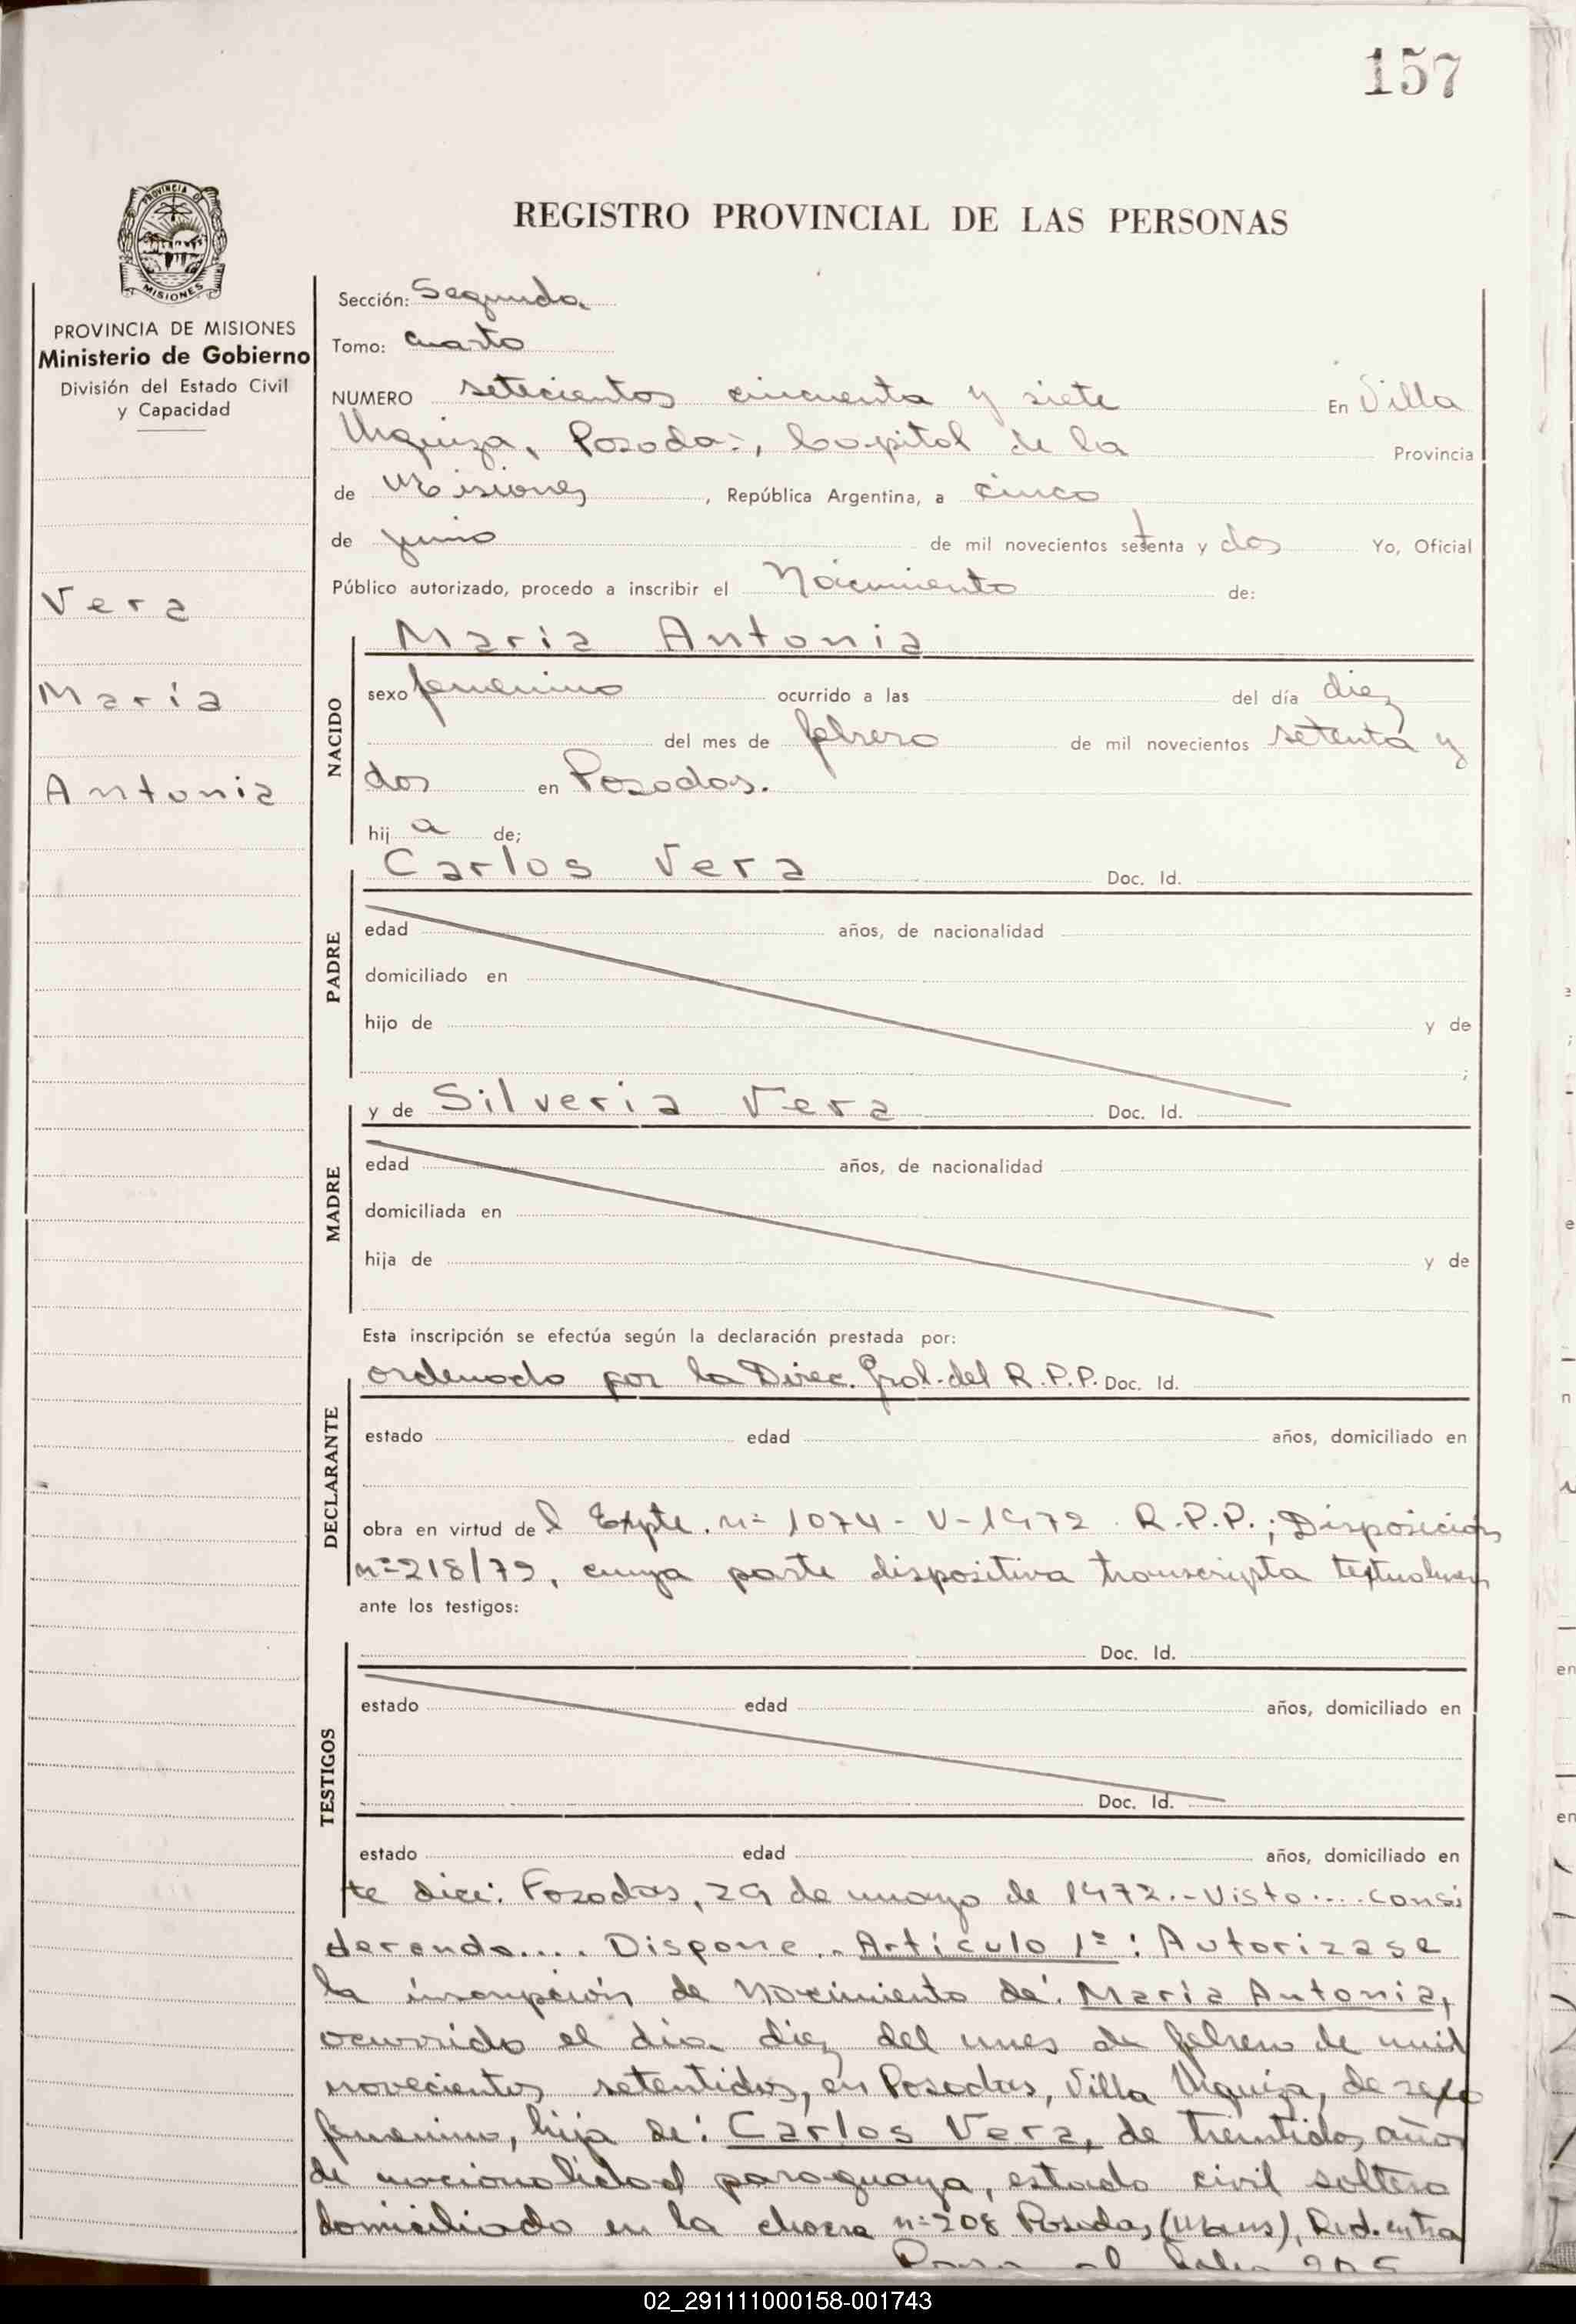 157
PROVINCIA DE
MISIONES
REGISTRO PROVINCIAL DE LAS PERSONAS
PROVINCIA DE MISIONES
Ministerio de Gobierno
División del Estado Civil
y Capacidad
Vera
María
Antonia
Sección: Segunda
Tomo: cuarto
NUMERO setecientos cincuenta y siete En Villa
Urquiza, Posadas, Capital de la Provincia
de Misiones, República Argentina, a cinco
de junio de mil novecientos setenta y dos Yo, Oficial
Público autorizado, procedo a inscribir el Nacimiento de:
NACIDO
María Antonia
sexo femenino ocurrido a las del día diez
del mes de febrero de mil novecientos setenta y
dos en Posadas.
hij a de;
PADRE
Carlos Vera Doc. Id.
edad años, de nacionalidad
domiciliado en
hijo de y de
;
MADRE
y de Silveria Vera Doc. Id.
edad años, de nacionalidad
domiciliada en
hija de y de
Esta inscripción se efectúa según la declaración prestada por:
DECLARANTE
ordenado por la Direc. Gral. del R.P.P. Doc. Id.
estado edad años, domiciliado en
obra en virtud del Expte. nº 1074-V-1972 R.P.P.; Disposición
nº 218/72, cuya parte dispositiva transcripta textualmen
ante los testigos:
TESTIGOS
Doc. Id.
estado edad años, domiciliado en
Doc. Id.
estado edad años, domiciliado en
te dice: Posadas, 29 de mayo de 1972.-Visto.... Consi
derando.... Dispone.. Artículo 1º: Autorizase
la inscripción de nacimiento de: María Antonia,
ocurrido el día diez del mes de febrero de mil
novecientos setentidos, en Posadas, Villa Urquiza, de sexo
femenino, hija de: Carlos Vera, de treintidos años
de nacionalidad paraguaya, estado civil soltero
domiciliado en la chacra nº 208 Posadas (Mnes), Red. entra
02_291111000158-001743